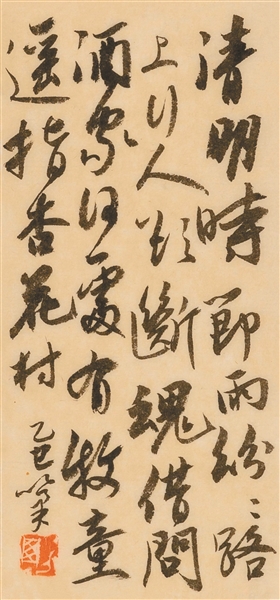 清明時節雨紛〻路
上行人欲斷魂借問
酒家何處有牧童
遥指杏花村
乙巳